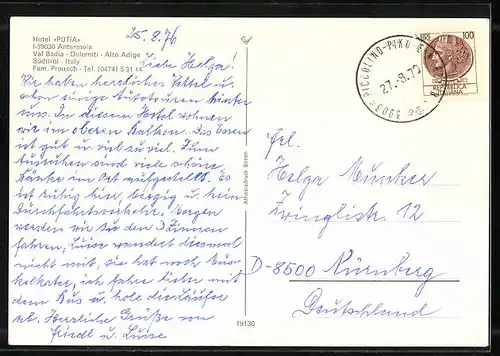 Hotel «PUTIA»
I-39030 Antermoia
Val Badia - Dolomiti - Alto Adige
Südtirol - Italy
Fam. Prousch - Tel. (0474) 5 31 14
25.8.76
Liebe Helga!
Wir haben herrliches Wetter u.
schon einige Autotouren hinter
uns. In diesem Hotel wohnen
wir im oberen Balkon. Das Essen
ist gut u. viel zu viel. Zum
Ausruhen sind viele schöne
Bänke im Ort aufgestellt. Es
ist ruhig hier, bergig u. kein
Durchfahrtsverkehr. Morgen
werden wir zu den 3 Zinnen
fahren, Luise wandert diesmal
nicht mit, sie hat noch Mus-
kelkater, ich fahre lieber mit
dem Bus u. hole die Läufer
ab. Herrliche Grüße von
Friedl u. Luise
Athesiadruck Bozen
19130
LIRE 100
REPUBBLICA
ITALIANA
PICCOLINO
27.-8.76
Frl.
Helga
Zwinglistr. 12
D-8500 Nürnberg
Deutschland